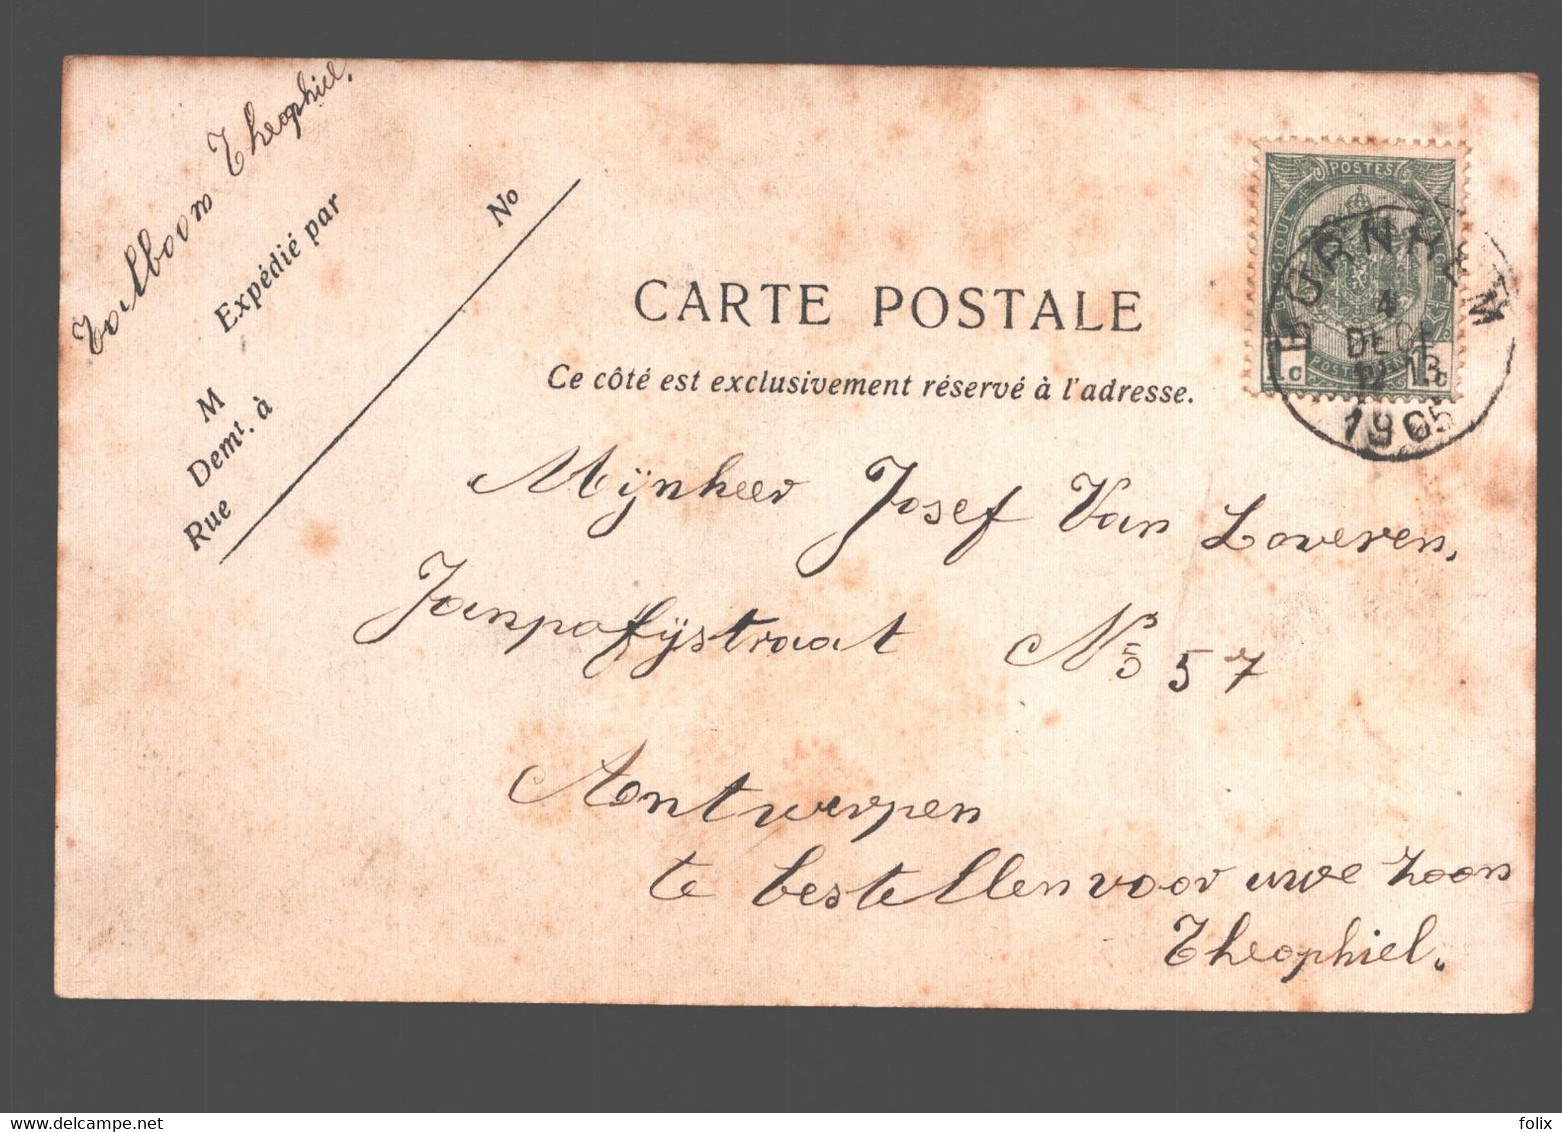 Theophiel.
Expédié par
No
M
Demt. à
Rue
CARTE POSTALE
Ce côté est exclusivement réservé à l'adresse.
POSTES
BURNHEM
4
DECE
12-13
1905
1c 1c
Mijnheer Josef Van Loveren,
straat No 57
Antwerpen
te bestellen voor uwe zoon
Theophiel.
felix